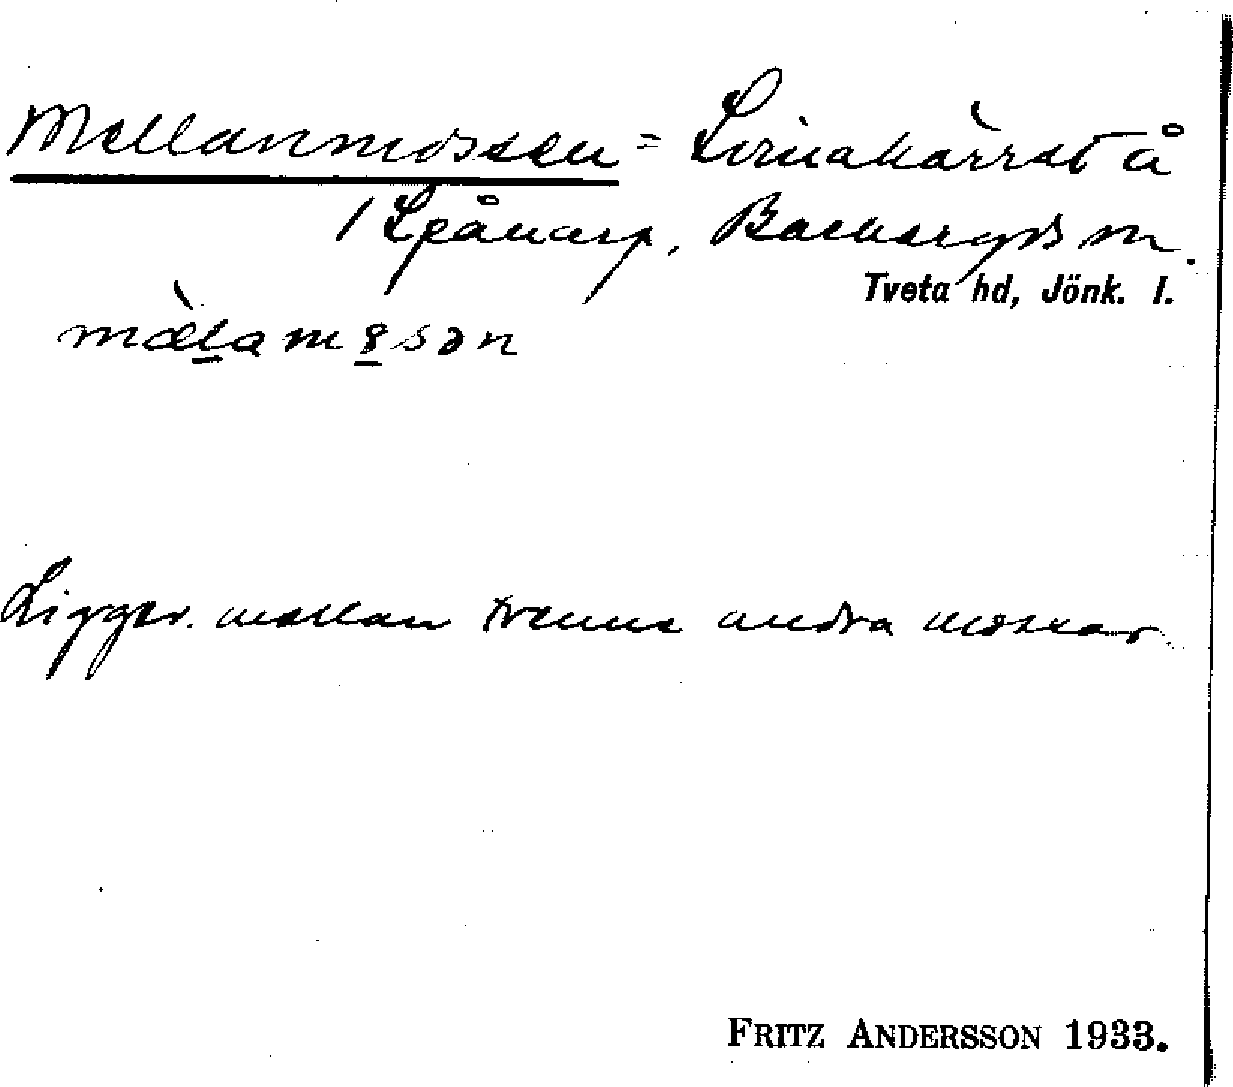 Mellanmossen = Svinakärret å
1 Spånarp, Backaryds sn.
Tveta hd, Jönk. l.
mælamɵsən
Ligger mellan tvenne andra mossar.
FRITZ ANDERSSON 1933.